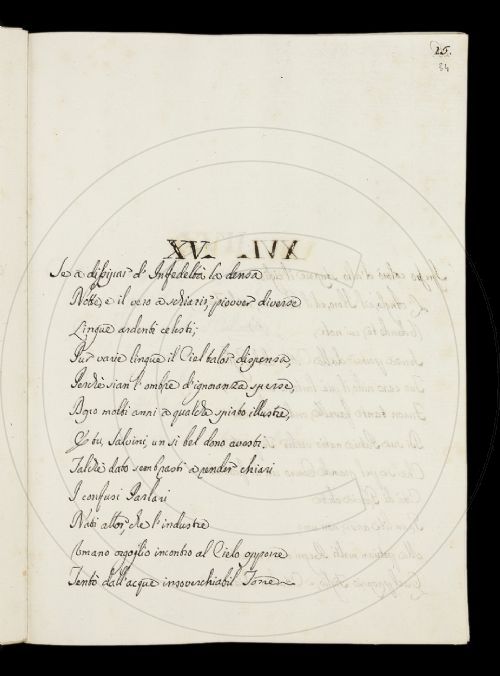 25.
84
XV. XVI
Se a dissipar d'Infedeltà la densa
Notte, e il vero a schiarir, piover diverse
Lingue ardenti celesti;
Pur varie lingue il Ciel talor dispensa,
Perchè sian l'ombre d'ignoranza sperse,
Dopo molti anni a qualche spirto illustre,
E tu, Salvini, un sì bel dono avesti.
Talchè dato sembrasti a render chiari
I confusi Parlari
Nati allor, che l'industre
Umano orgoglio incontro al Cielo opporre
Tentò dall'acque insoverchiabil Torre